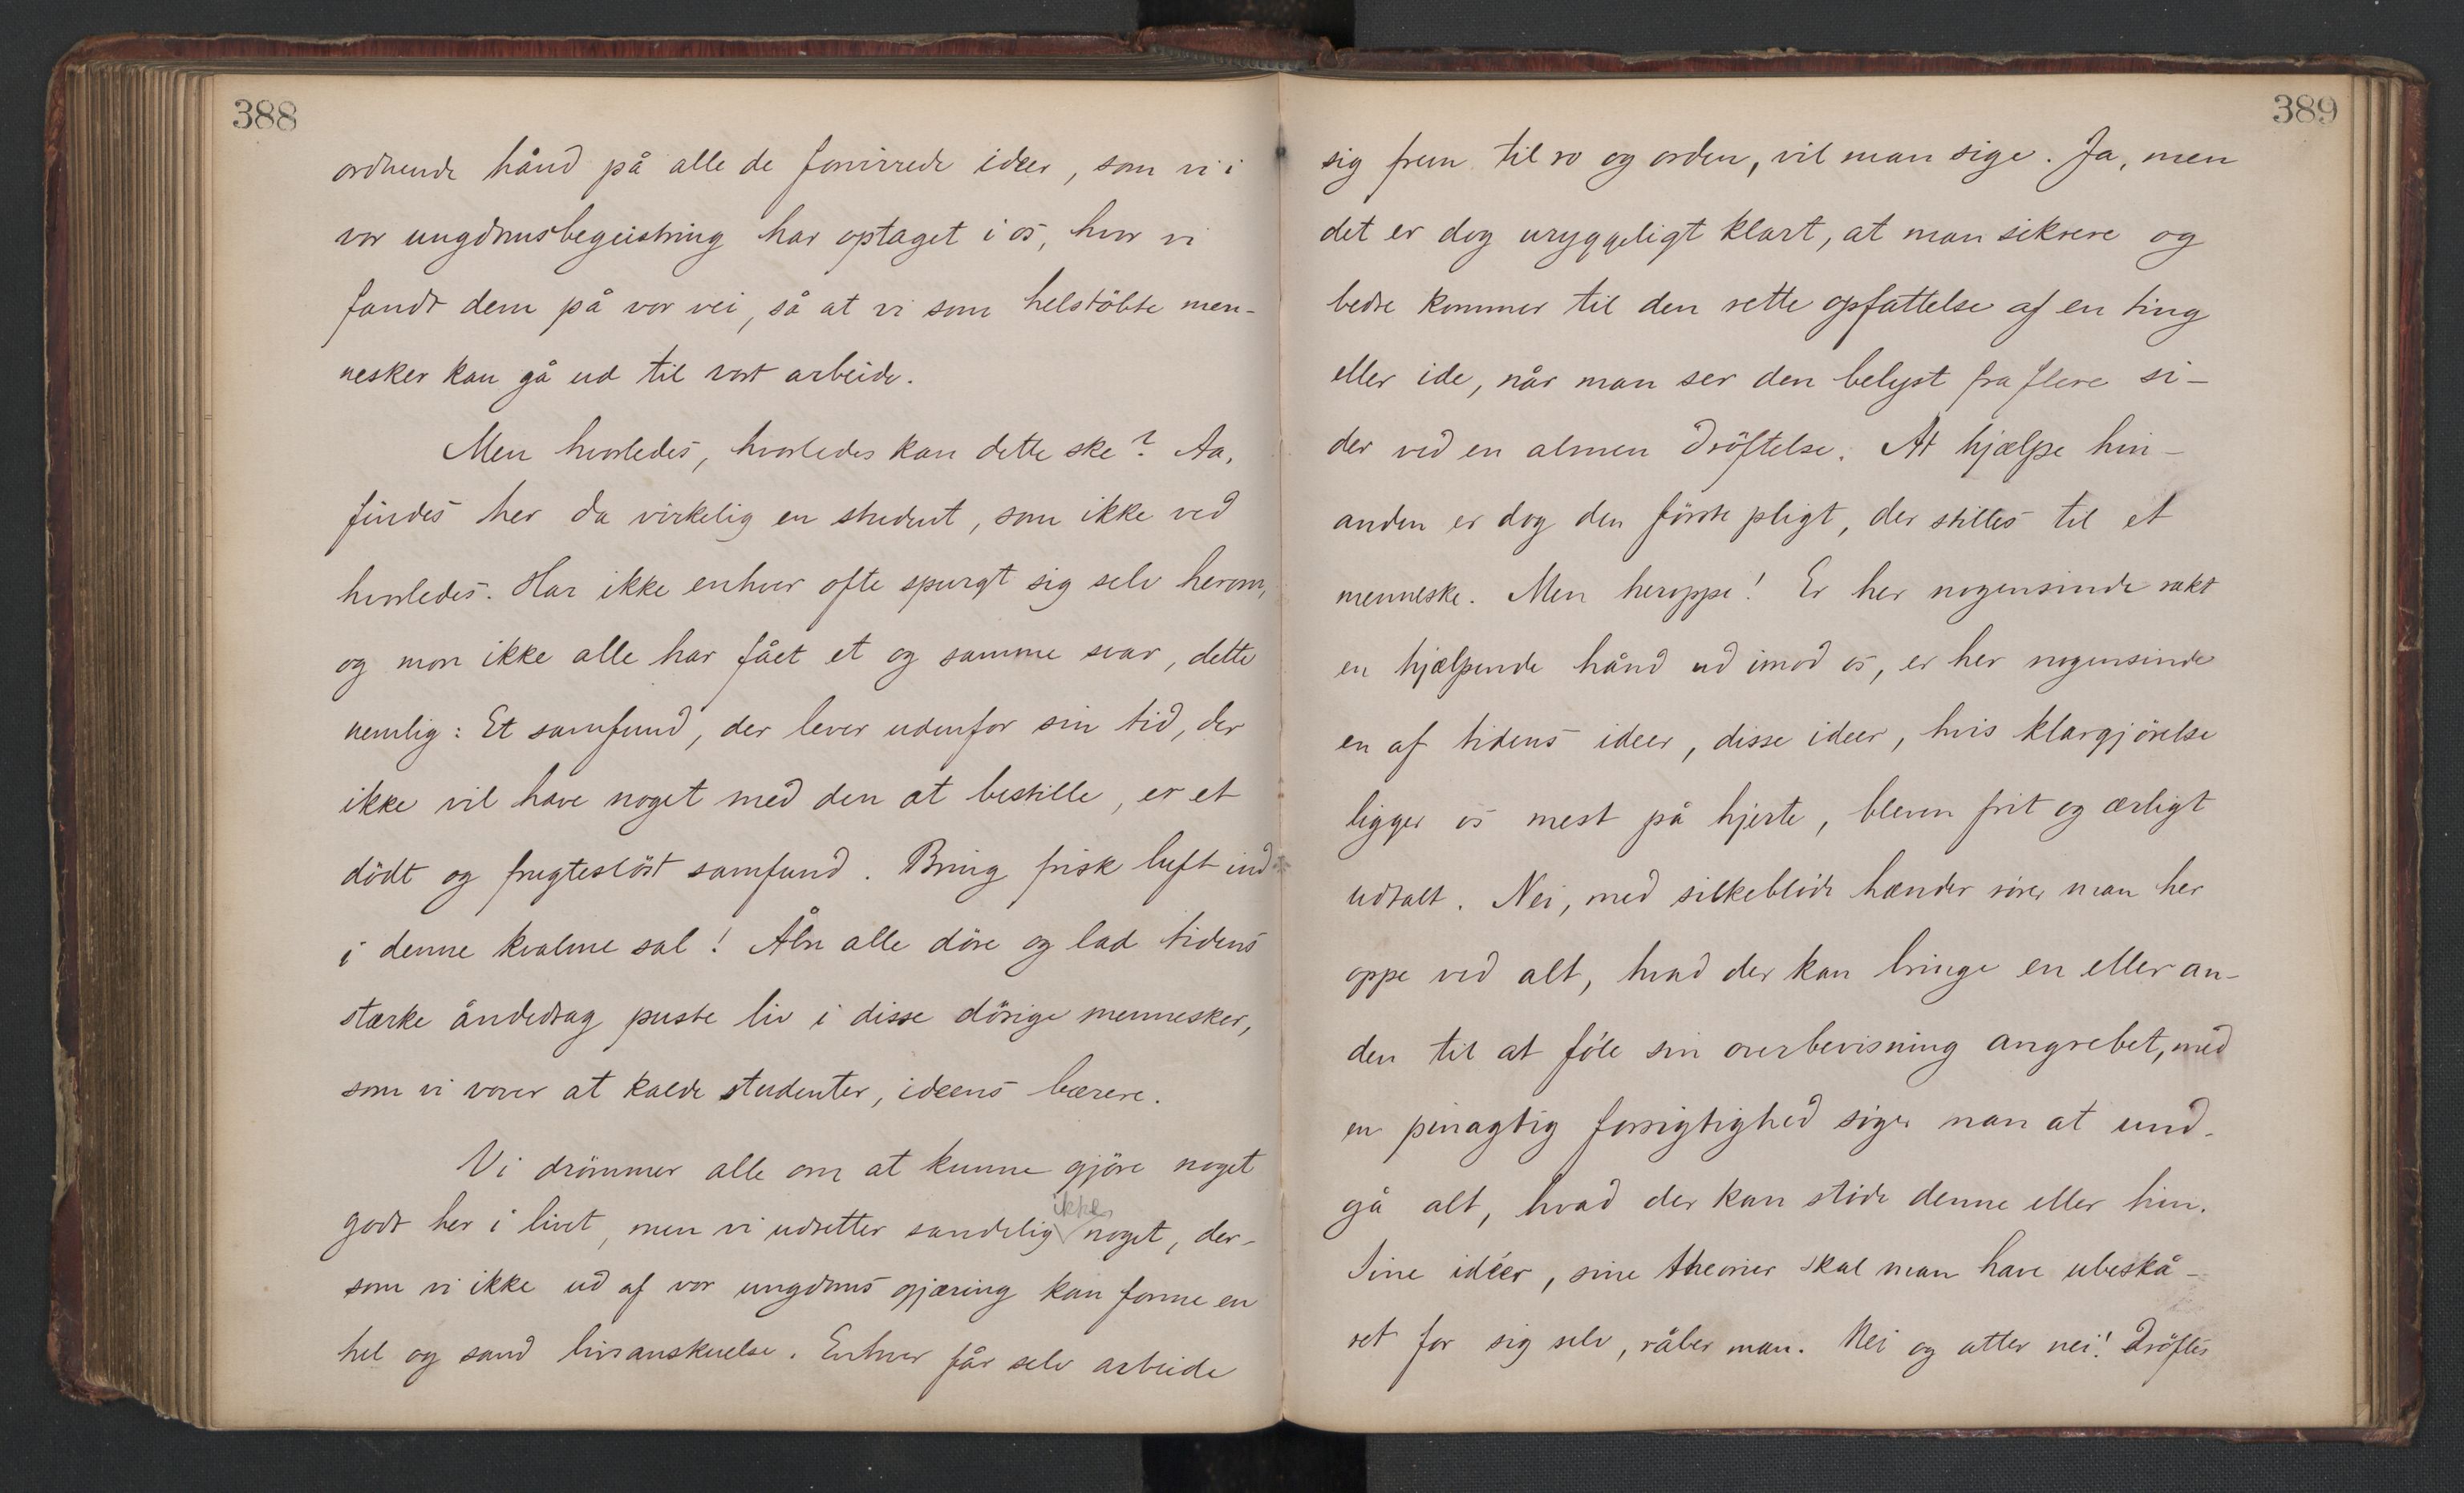 388
ordnende hånd på alle de forvirrede ideer, som vi i
vor ungdomsbegeistring har optaget i os, hvor vi
fandt dem på vor vei, så at vi som helstöbte men-
nesker kan gå ud til vort arbeide.
Men hvorledes, hvorledes kan dette ske? Aa,
findes her da virkelig en student, som ikke ved
hvorledes. Har ikke enhver ofte spurgt sig selv herom,
og mon ikke alle har fået et og samme svar, dette
nemlig: Et samfund, der lever udenfor sin tid, der
ikke vil have noget med den at bestille, er et
dödt og frugteslöst samfund. Bring frisk luft ind
i denne kvalme sal! Åbn alle döre og lad tidens
stærke åndedrag puste liv i disse dösige mennesker,
som vi vover at kalde studenter, ideens bærere.
Vi drömmer alle om at kunne gjöre noget
godt her i livet, men vi udretter sandelig ikke noget, der-
som vi ikke ud af vor ungdoms gjæring kan forme en
hel og sand livsanskuelse. Enhver får selv arbeide
389
sig frem til ro og orden, vil man sige. Ja, men
det er dog uryggeligt klart, at man sikrere og
bedre kommer til den rette opfattelse af en ting
eller ide, når man ser den belyst fra flere si-
der ved en almen dröftelse. At hjælpe hin-
anden er dog den förste pligt, der stilles til et
menneske. Men heroppe! Er her nogensinde rakt
en hjælpende hånd ud imod os, er her nogensinde
en af tidens ideer, disse ideer, hvis klargjörelse
ligger os mest på hjerte, bleven frit og ærligt
udtalt. Nei, med silkeblöde hænder rörer man her
oppe ved alt, hvad der kan bringe en eller an-
den til at föle sin overbevisning angrebet, med
en pinagtig forsigtighed söger man at und-
gå alt, hvad der kan stöde denne eller hin.
Sine idéer, sine theorier skal man have ubeskå-
ret for sig selv, råber man. Nei og atter nei! Dröftes